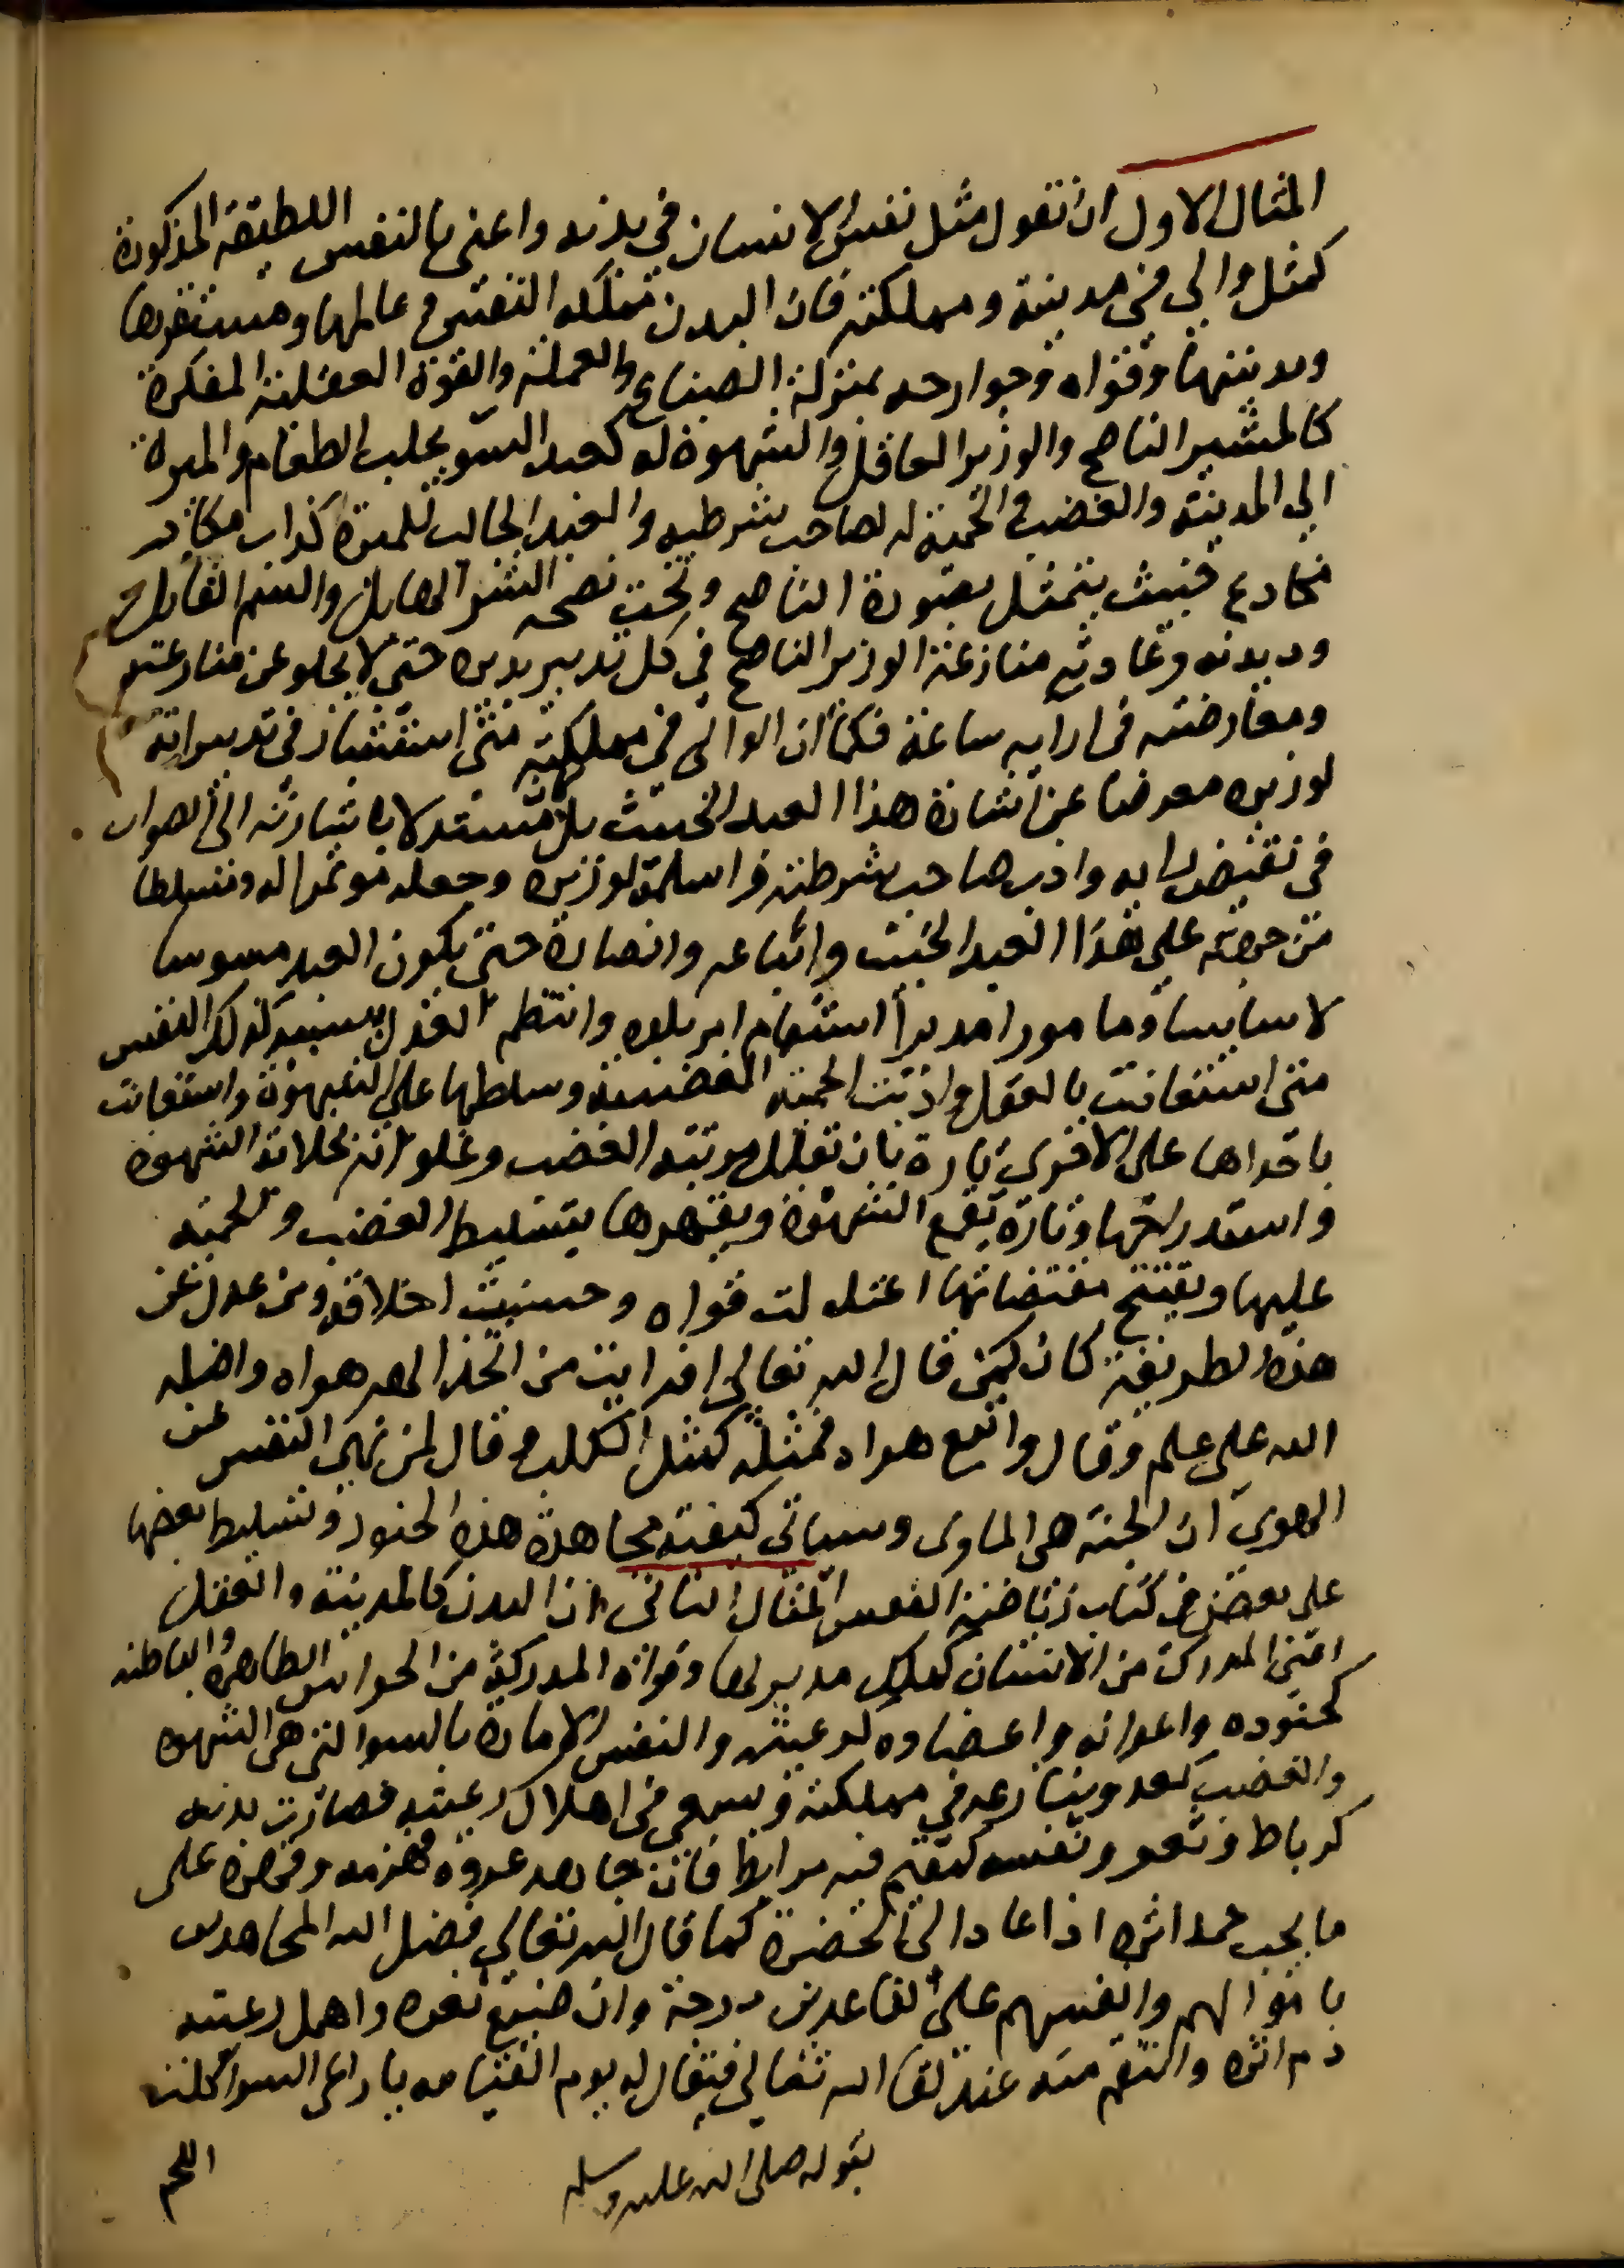 المثال الاول ان نقول مثل نفس الانسان في بدنه واعني بالنفس اللطيفة المذكورة
كمثل والي في مدينة ومملكته فان البدن مملكه النفس وعالمها ومستقرها
ومدينتها وقواه وجوارحه بمنزلة الصناع والعملة والقوة العقلية المفكرة
كالمشير الناصح والوزير العاقل والشهوة له كعبد السو يجلب الطعام والميرة
الي المدينة والغضب والحمية له لصاحب شرطيه والعبد الجالب للميرة كذاب مكار
مخادع خبيث يتمثل بصورة الناصح وتحت نصحه الشر الهايل والسم القاتل
وديدنه وعادته منازعة الوزير الناصح في كل تدبير يدبره حتي لا يخلو عن منازعته
ومعارضته في ارايه ساعة فكما ان الوالي في مملكته متي استشار في تدبيراته
لوزيره معرضا عن اشارة هذا العبد الخبيث بل مستدلا باشارته الي ان الصواب
في نقيض رايه وادب صاحب شرطته واسلمه لوزيره وجعله موتمرا له ومسلطا
من جهته علي هذا العبد الخبيث واتباعه وانصاره حتي يكون العبد مسوسا
لا سايسا ومامورا مدبرا استقام امر بلده وانتظم العدل بسببه كذلك النفس
متي استعانت بالعقل وادبت الحمية الغضبية وسلطها علي الشهوة واستعانت
باحداها علي الاخري تارة بان تقلل مرتبة الغضب وغلوائه بخلابة الشهوة
واستدراجها وتارة بقمع الشهوة ويقهرها بتسليط الغضب والحمية
عليها وتقبيح مقتضياتها اعتدلت قواه وحسنت اخلاقه ومن عدل عن
هذه الطريقة كان كمن قال الله تعالي افرايت من اتخذ الهه هواه واضله
الله علي علم وقال واتبع هواه فمثله كمثل الكلب وقال لمن نهي النفس عن
الهوي ان الجنة هي الماوي وسياتي كيفية مجاهدة هذه الجنود وتسليط بعضها
علي بعض في كتاب رياضة النفس المثال الثاني ان البدن كالمدينة والعقل
اعني المدرك من الانسان كملك مدبر لها وقواه المدركة من الحواس الظاهرة والباطنه
كجنوده واعوانه واعضاوه كرعيته والنفس الامارة بالسوا التي هي الشهوة
والغضب كعدو ينازعه في مملكته ويسعي في اهلاك رعيته فصارت بدنه
كرباط وثغر ونفسه كمقيم فيه مرابط فان جاهد عدوه فهزمه وقهره علي
ما يجب حمد اثره اذا عاد الي الحضرة كما قال الله تعالي فضل الله المجاهدين
باموالهم وانفسهم علي القاعدين درجة وان ضيع ثغره واهمل رعيته
ذم اثره وانتقم منه عند لقا الله تعالي فيقال له يوم القيامه يا راعي السوا اكلت
بقوله صلي الله عليه وسلم
اللحم